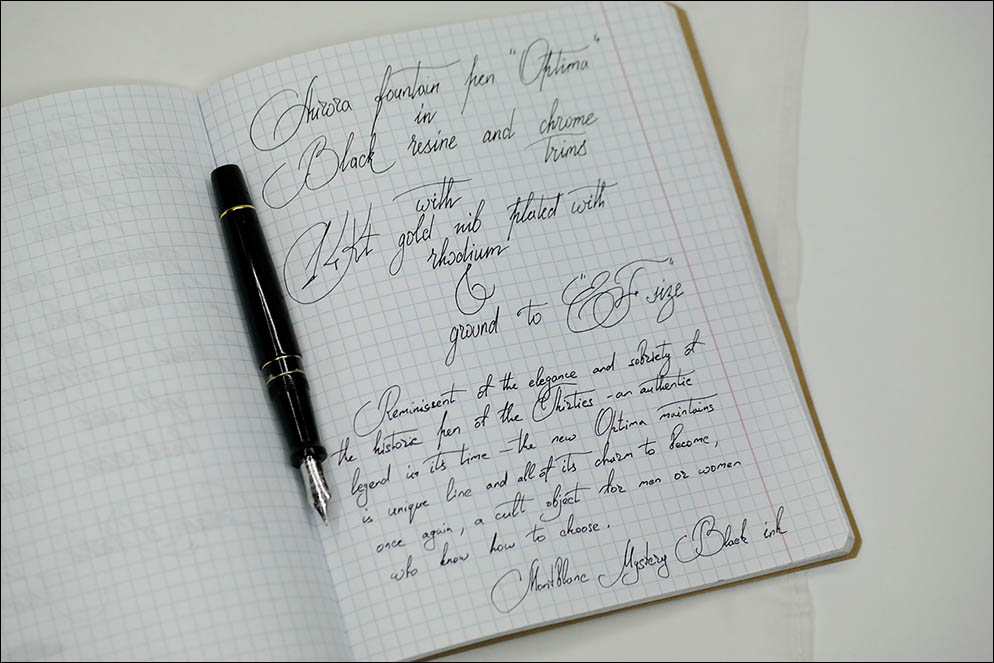 Aurora fountain pen "Optima"
in
Black resine and chrome
trims
with
14Kt gold nib plated with
rhodium
&
ground to "EF" size
Reminissent of the elegance and sobriety of
the historic pen of the Thirties - an authentic
legend in its time - the new Optima maintains
is unique line and all of its charm to become,
once again, a cult object for man or women
who know how to choose.
MontBlanc Mystery Black ink